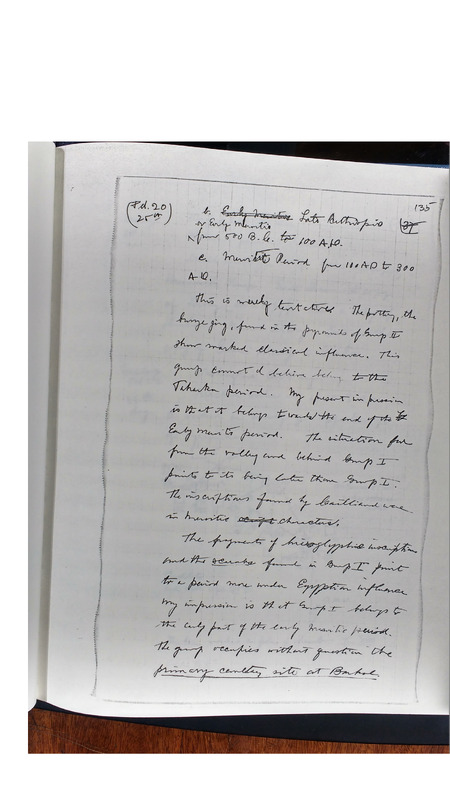 135
(Feb. 20
25th)
b. Early Meroitic Late Aethiopic
or Early Meroitic
from 500 B.C. to 100 A.D.
c. Meroitic Period from 100 AD to 300
A.D.
This is merely tentative. The pottery, the
bronze ring, found in the pyramids of Group II
show marked classical influence. This
group cannot I believe belong to the
Taharka period. My present impression
is that it belongs toward the end of the
Early Meroitic period. The situation far
from the valley and behind Group I
points to its being later than Group I.
The inscriptions found by Cailliaud were
in Meroitic script characters.
The fragments of hieroglyphic inscriptions
and the found in Group I point
to a period more under Egyptian influence
My impression is that Group I belongs to
the early part of the early Meroitic period.
The group occupies without question the
primary cemetery site at Barkal.